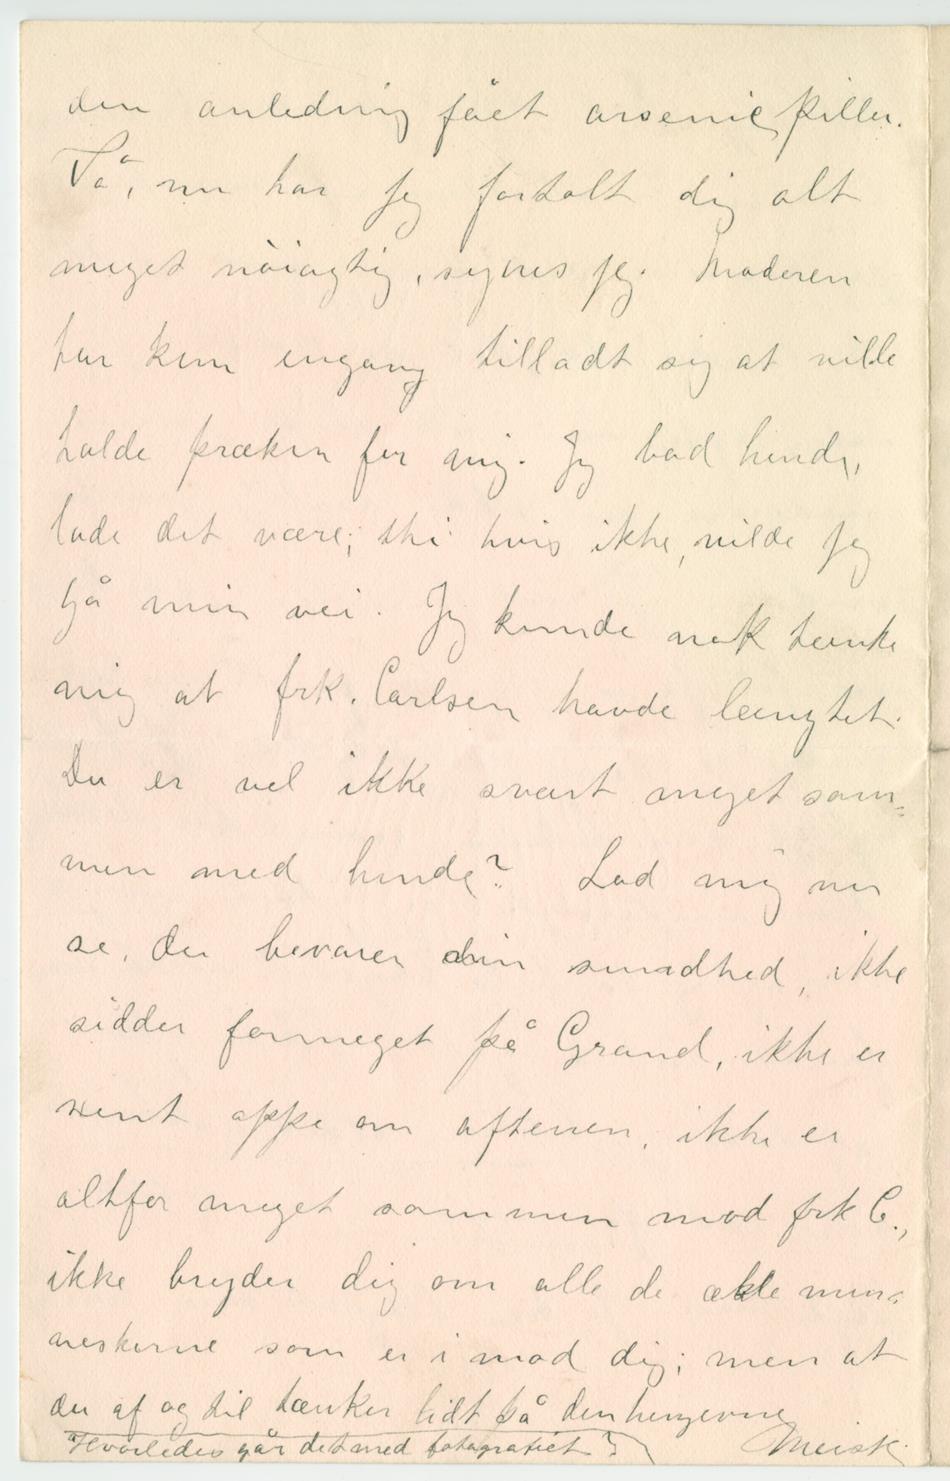 den anledning fået arsenicpiller.
Så, nu har jeg fortalt dig alt
meget nöiagtig, synes jeg. Moderen
har kun engang tilladt sig at ville
holde præken for mig. Jeg bad hende,
lade det være; thi hvis ikke, vilde jeg
gå min vei. Jeg kunde nok tænke
mig at frk. Carlsen havde længtet.
Du er vel ikke svært meget sam-
men med hende? Lad mig nu
se, du bevarer din sundhed, ikke
sidder formeget på Grand, ikke er
sent oppe om aftenen, ikke er
altfor meget sammen med frk C.,
ikke bryder dig om alle de ækle men-
neskerne som er i mod dig; men at
du af og til tænker lidt på den hengivne
Hvorledes går det med fotografiet?